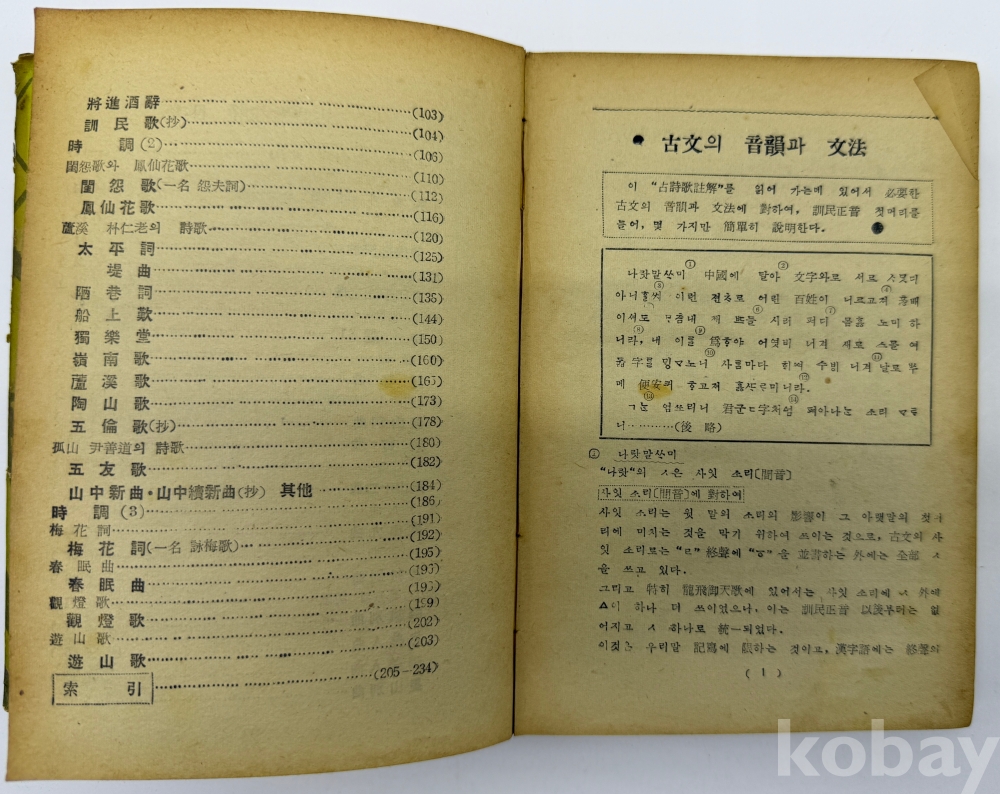 將進酒辭 (103)
訓民歌(抄) (104)
時調(2) (106)
閨怨歌와 鳳仙花歌 (110)
閨怨歌(一名 怨夫詞) (112)
鳳仙花歌 (116)
蘆溪 朴仁老의 詩歌 (120)
太平詞 (125)
堤曲 (131)
陋巷詞 (135)
船上歎 (144)
獨樂堂 (150)
嶺南歌 (160)
蘆溪歌 (165)
陶山歌 (173)
五倫歌(抄) (178)
孤山 尹善道의 詩歌 (180)
五友歌 (182)
山中新曲·山中續新曲(抄) 其他 (184)
時調(3) (186)
梅花詞 (191)
梅花詞(一名 詠梅歌) (192)
春眠曲 (195)
春眠曲 (196)
觀燈歌 (199)
觀燈歌 (202)
遊山歌 (203)
遊山歌
索引 (205-234)
古文의 音韻과 文法
이 "古詩歌註解"를 읽어 가는데 있어서 必要한
古文의 音韻과 文法에 對하여, 訓民正音 첫머리를
들어, 몇 가지만 簡單히 說明한다.
나랏말ᄊᆞ미 中國에 달아 文字와로 서로 ᄉᆞᄆᆺ디
아니ᄒᆞᆯᄊᆡ 이런 전ᄎᆞ로 어린 百姓이 니르고져 홇배
이셔도 ᄆᆞᄎᆞᆷ내 제 ᄠᅳ들 시러 펴디 몯ᄒᆞᇙ 노미 하
니라, 내 이를 爲ᄒᆞ야 어엿비 너겨 새로 스믈 여
듧 字를 ᄆᆡᇰᄀᆞ노니 사ᄅᆞᆷ마다 ᄒᆡᅇᅧ 수ᄫᅵ 니겨 날로 ᄡᅮ
메 便安킈 ᄒᆞ고져 ᄒᆞᇙᄯᆞᄅᆞ미니라.
ㄱᄂᆞᆫ 엄쏘리니 君군ㄷ字처ᅀᅥᆷ 펴아나ᄂᆞᆫ 소리 ᄀᆞᄐᆞ
니………(後略)
① 나랏말ᄊᆞ미
"나랏"의 ㅅ은 사잇 소리[間音]
사잇 소리[間音]에 對하여
사잇 소리는 윗 말의 소리의 影響이 그 아랫말의 첫소
리에 미치는 것을 막기 위하여 쓰이는 것으로, 古文의 사
잇 소리로는 "ㄹ"終聲에 "ㆆ"을 並書하는 外에는 全部 ㅅ
을 쓰고 있다.
그리고 特히 龍飛御天歌에 있어서는 사잇 소리에 ㅅ 外에
ㅿ이 하나 더 쓰이었으나, 이는 訓民正音 以後부터는 없
어지고 ㅅ 하나로 統一되었다.
이것은 우리말 記寫에 關하는 것이고, 漢字語에는 終聲의
(1)
kobay